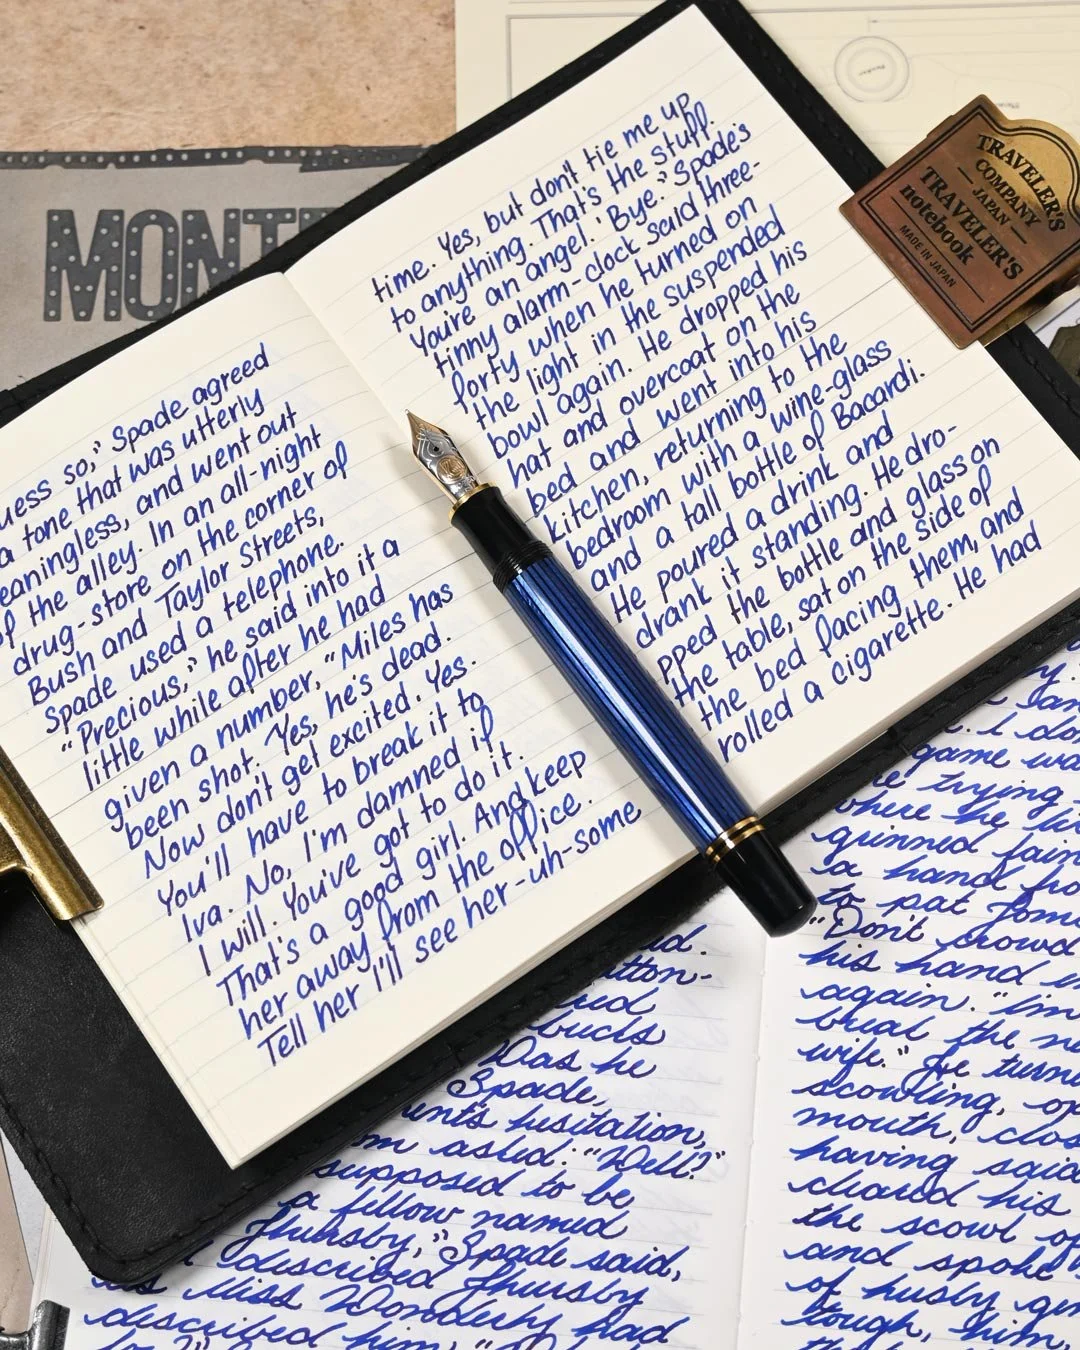 MONT
TRAVELER'S
COMPANY
JAPAN
TRAVELER'S
notebook
MADE IN JAPAN
uess so," Spade agreed
a tone that was utterly
eaningless, and went out
of the alley. In an all-night
drug-store on the corner of
Bush and Taylor Streets,
Spade used a telephone.
"Precious," he said into it a
little while after he had
given a number, "Miles has
been shot. Yes, he's dead.
Now don't get excited. Yes.
You'll have to break it to
Iva. No, I'm damned if
I will. You've got to do it.
That's a good girl. And keep
her away from the office.
Tell her I'll see her-uh-some
time. Yes, but don't tie me up
to anything. That's the stuff.
You're an angel. 'Bye." Spade's
tinny alarm-clock said three-
forty when he turned on
the light in the suspended
bowl again. He dropped his
hat and overcoat on the
bed and went into his
kitchen, returning to the
bedroom with a wine-glass
and a tall bottle of Bacardi.
He poured a drink and
drank it standing. He dro-
pped the bottle and glass on
the table, sat on the side of
the bed facing them, and
rolled a cigarette. He had
bucks
Was he
Spade,
ent's hesitation,
om asked: "Well?"
supposed to be
a fellow named
Thursby," Spade said,
described Thursby
as Miss Wonderly had
described him.
game wa
e trying
where the
grinned fain
a hand
to pat
"Don't crowd
his hand
again. "I'm
break the
wife." He turn
scowling, op
mouth, clos
having said
cleared his
the scowl of
and spoke
of husky
tough, him,